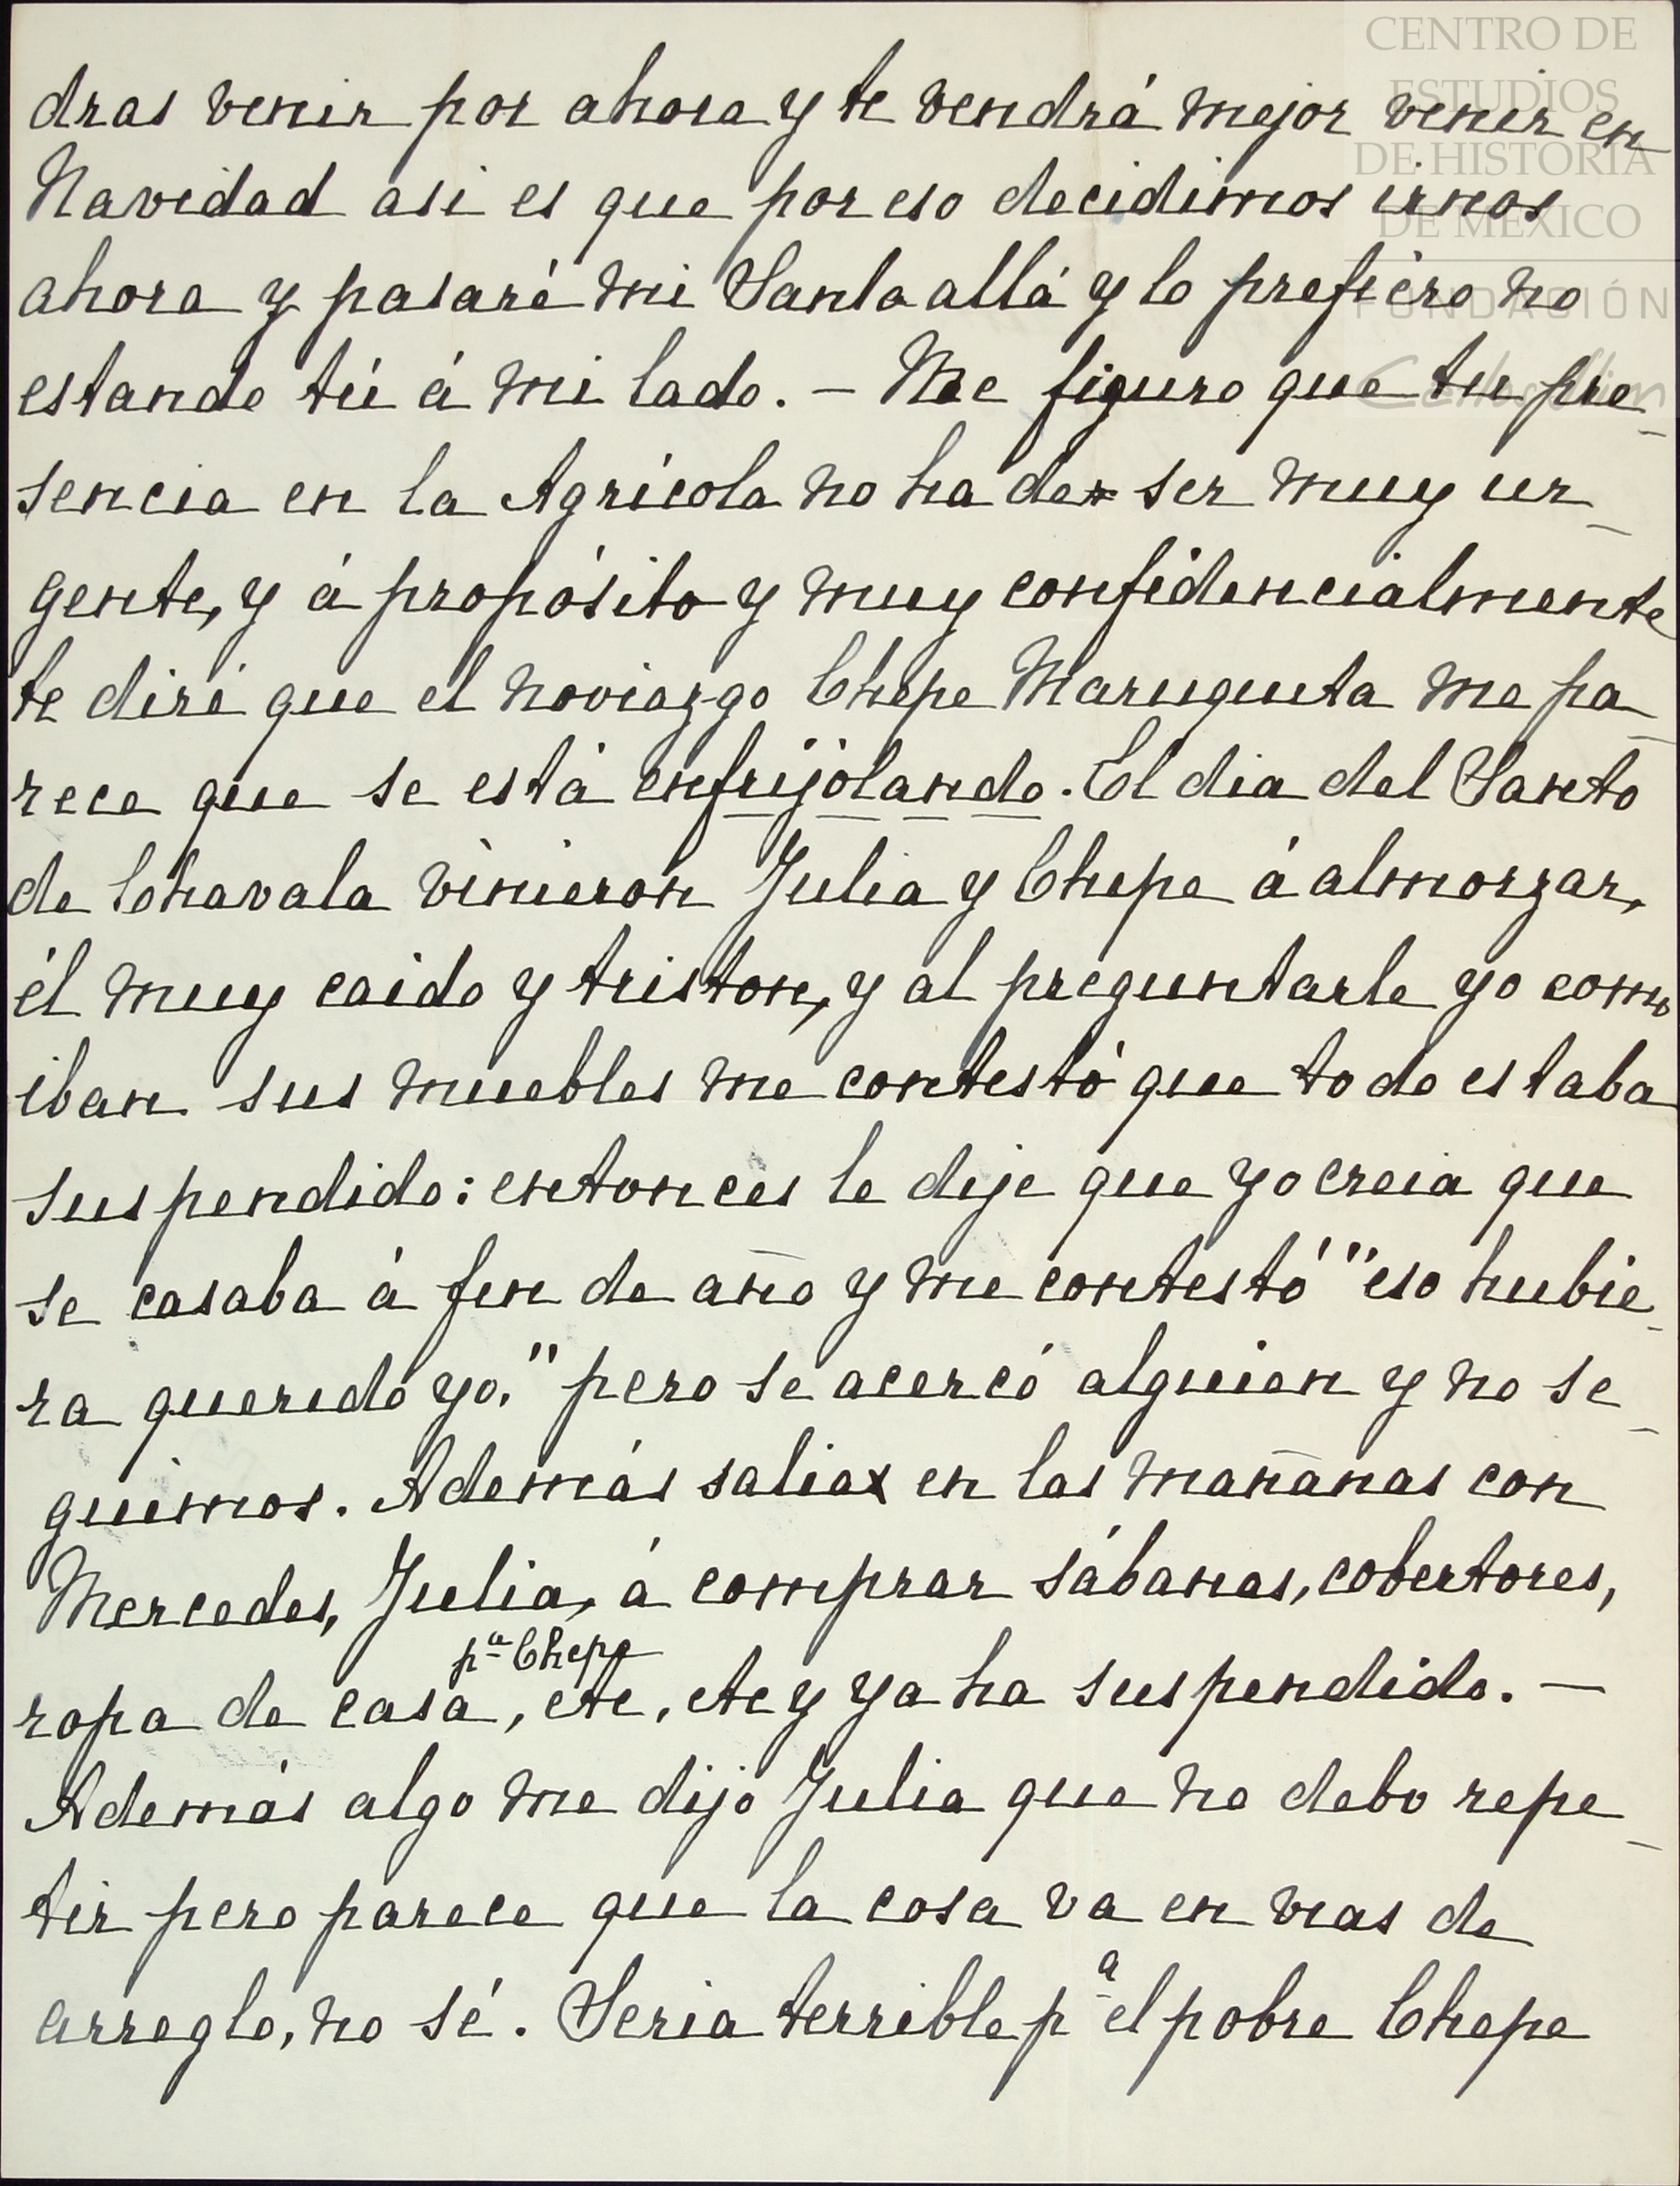 CENTRO DE
ESTUDIOS
DE HISTORIA
DE MEXICO
FUNDACIÓN
dras venir por ahora y te vendrá mejor venir en
Navidad asi es que por eso decidimos irnos
ahora y pasaré mi Santo allá y lo prefiero no
estando tú á mi lado. — Me figuro que tu pre-
sencia en la Agrícola no ha de ser muy ur-
gente, y á propósito y muy confidencialmente
te diré que el noviazgo Chepe Maruquita me pa-
rece que se está enfrijolando. El dia del Santo
de Chavala vinieron Julia y Chepe á almorzar,
él muy caido y triston, y al preguntarle yo como
iban sus muebles me contestó que todo estaba
suspendido: entonces le dije que yo creia que
se casaba á fin de año y me contestó "eso hubie-
ra querido yo." pero se acercó alguien y no se-
guimos. Además salia en las mañanas con
Mercedes, Julia, á comprar sábanas, cobertores,
pª Chepe
ropa de casa, etc, etc y ya ha suspendido. —
Además algo me dijo Julia que no debo repe-
tir pero parece que la cosa va en vias de
arreglo, no sé. Seria terrible pª el pobre Chepe